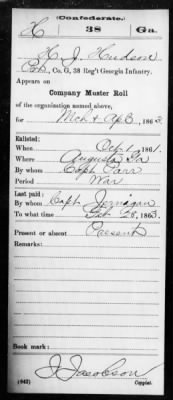 Confederate.
H 38 Ga.
H. J. Hudson
Co. G, 38 Reg't Georgia Infantry.
Appears on
Company Muster Roll
of the organization named above,
for Mch & Apl, 1863.
Enlisted:
When Oct 1, 1861.
Where Augusta Ga
By whom Capt Parr
Period War
Last paid:
By whom Capt. Jernigan
To what time Feb 28, 1863.
Present or absent Present
Remarks:
Book mark:
J. Jacobson
(642) Copyist.